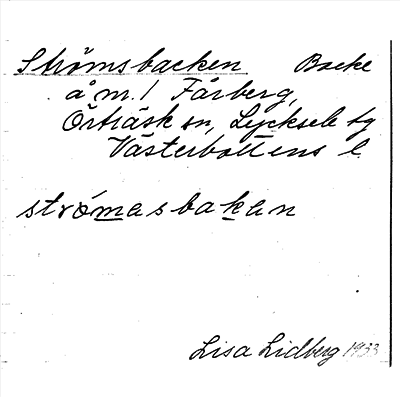 Strömsbacken Backe
å m./ Fårberg,
Örträsk sn, Lycksele tg
Västerbottens l
strömasbakan
Lisa Lidberg 1933